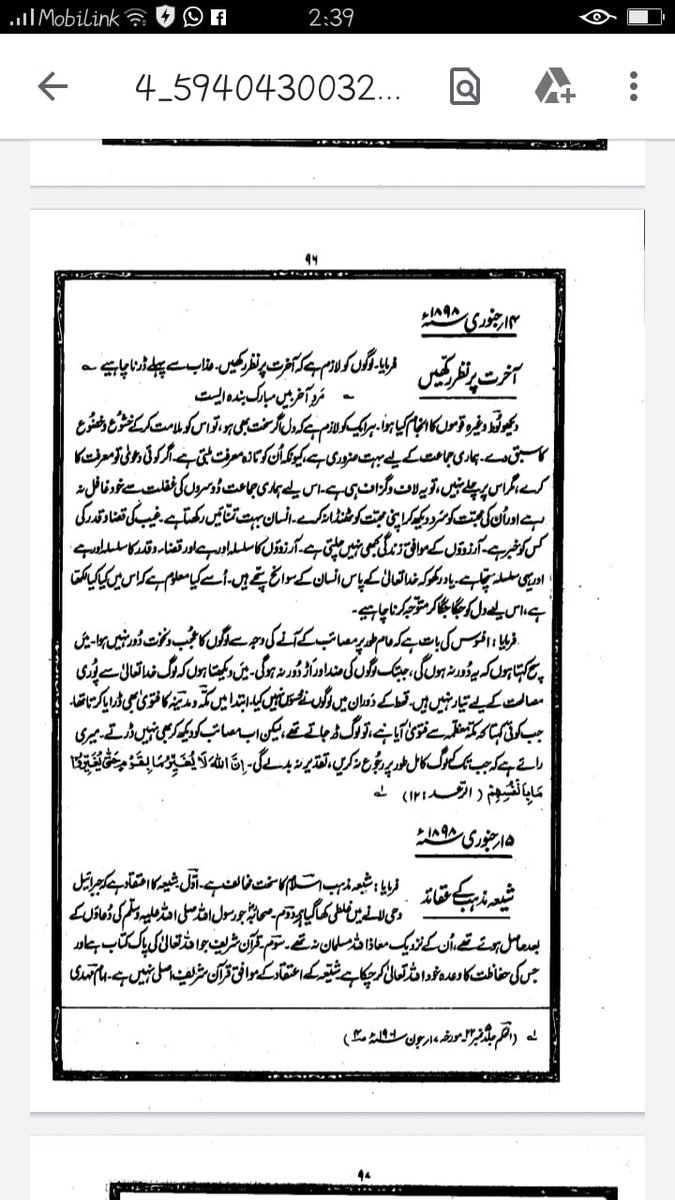 Mobilink 2:39
4_5940430032...
۹۶
۱۴؍ جنوری ۱۸۹۸ء
آخرت پر نظر رکھیں
فرمایا۔ لوگوں کو لازم ہے کہ آخرت پر نظر رکھیں۔ عذاب سے پہلے ڈرنا چاہیے ؎
؎ مردِ آخر بیں مبارک بندہ ایست
دیکھو لوط وغیرہ قوموں کا انجام کیا ہوا۔ ہر ایک کو لازم ہے کہ دل اگر سخت بھی ہو، تو اس کو ملامت کر کے خشوع و خضوع
کا سبق دے۔ ہماری جماعت کے لیے بہت ضروری ہے، کیونکہ اُن کو تازہ معرفت ملتی ہے۔ اگر کوئی دعویٰ تو معرفت کا
کرے، مگر اس پر چلے نہیں، تو یہ لاف و گزاف ہی ہے۔ اس لیے ہماری جماعت دوسروں کی غفلت سے خود غافل نہ
رہے اور اُن کی محبت کو سرد دیکھ کر اپنی محبت کو ٹھنڈا نہ کرے۔ انسان بہت تمنائیں رکھتا ہے۔ غیب کی قضا و قدر کی
کس کو خبر ہے۔ آرزوؤں کے موافق زندگی کبھی نہیں چلتی ہے۔ آرزوؤں کا سلسلہ اور ہے اور قضاء و قدر کا سلسلہ اور ہے
اور یہی سلسلہ سچا ہے۔ یاد رکھو کہ خدا تعالیٰ کے پاس انسان کے سوانح سچے ہیں۔ اُسے کیا معلوم ہے کہ اس میں کیا کیا لکھا
ہے، اس لیے دل کو جگا جگا کر متوجہ کرنا چاہیے۔
فرمایا: افسوس کی بات ہے کہ عام طور پر مصائب کے آنے کی وجہ سے لوگوں کا عُجب و نخوت دُور نہیں ہوا۔ میں
سچ کہتا ہوں کہ یہ دُور نہ ہوں گی، جب تک لوگوں کی ضد اور اڑ دُور نہ ہو گی۔ میں دیکھتا ہوں کہ لوگ خدا تعالیٰ سے پُوری
مصالحت کے لیے تیار نہیں ہیں۔ قحط کے دَوران میں لوگوں نے نہیں کیا۔ ابتدا میں مکہ و مدینہ کا فتویٰ بھی ڈرایا کرتا تھا۔
جب کوئی کہتا کہ مکہ معظمہ سے فتویٰ آیا ہے، تو لوگ ڈر جاتے تھے، لیکن اب مصائب کو دیکھ کر بھی نہیں ڈرتے۔ میری
رائے ہے کہ جب تک لوگ کامل طور پر رجوع نہ کریں، تقدیر نہ بدلے گی۔ اِنَّ اللّٰهَ لَا يُغَيِّرُ مَا بِقَوْمٍ حَتّٰى يُغَيِّرُوْا
مَا بِاَنْفُسِهِمْ (الرعد: ۱۲) ؎
۱۵؍ جنوری ۱۸۹۸ء
شیعہ مذہب کے عقائد
فرمایا: شیعہ مذہب اسلام کا سخت مخالف ہے۔ اوّل شیعہ کا اعتقاد ہے کہ جبرائیل
وحی لانے میں غلطی کھا گیا ہے، دوم۔ صحابہؓ جو رسول اللہ صلی اللہ علیہ وسلم کی دُعاؤں کے
بعد حاصل ہوئے تھے، اُن کے نزدیک معاذ اللہ مسلمان نہ تھے۔ سوم۔ قرآن شریف جو اللہ تعالیٰ کی پاک کتاب ہے اور
جس کی حفاظت کا وعدہ خود اللہ تعالیٰ کر چکا ہے شیعہ کے اعتقاد کے موافق قرآن شریف اصلی نہیں ہے۔ امام مہدی
؎ (الحکم جلد ۵ نمبر ۲۲ مورخہ ۱۷؍ جون ۱۹۰۱ء)
۹۷